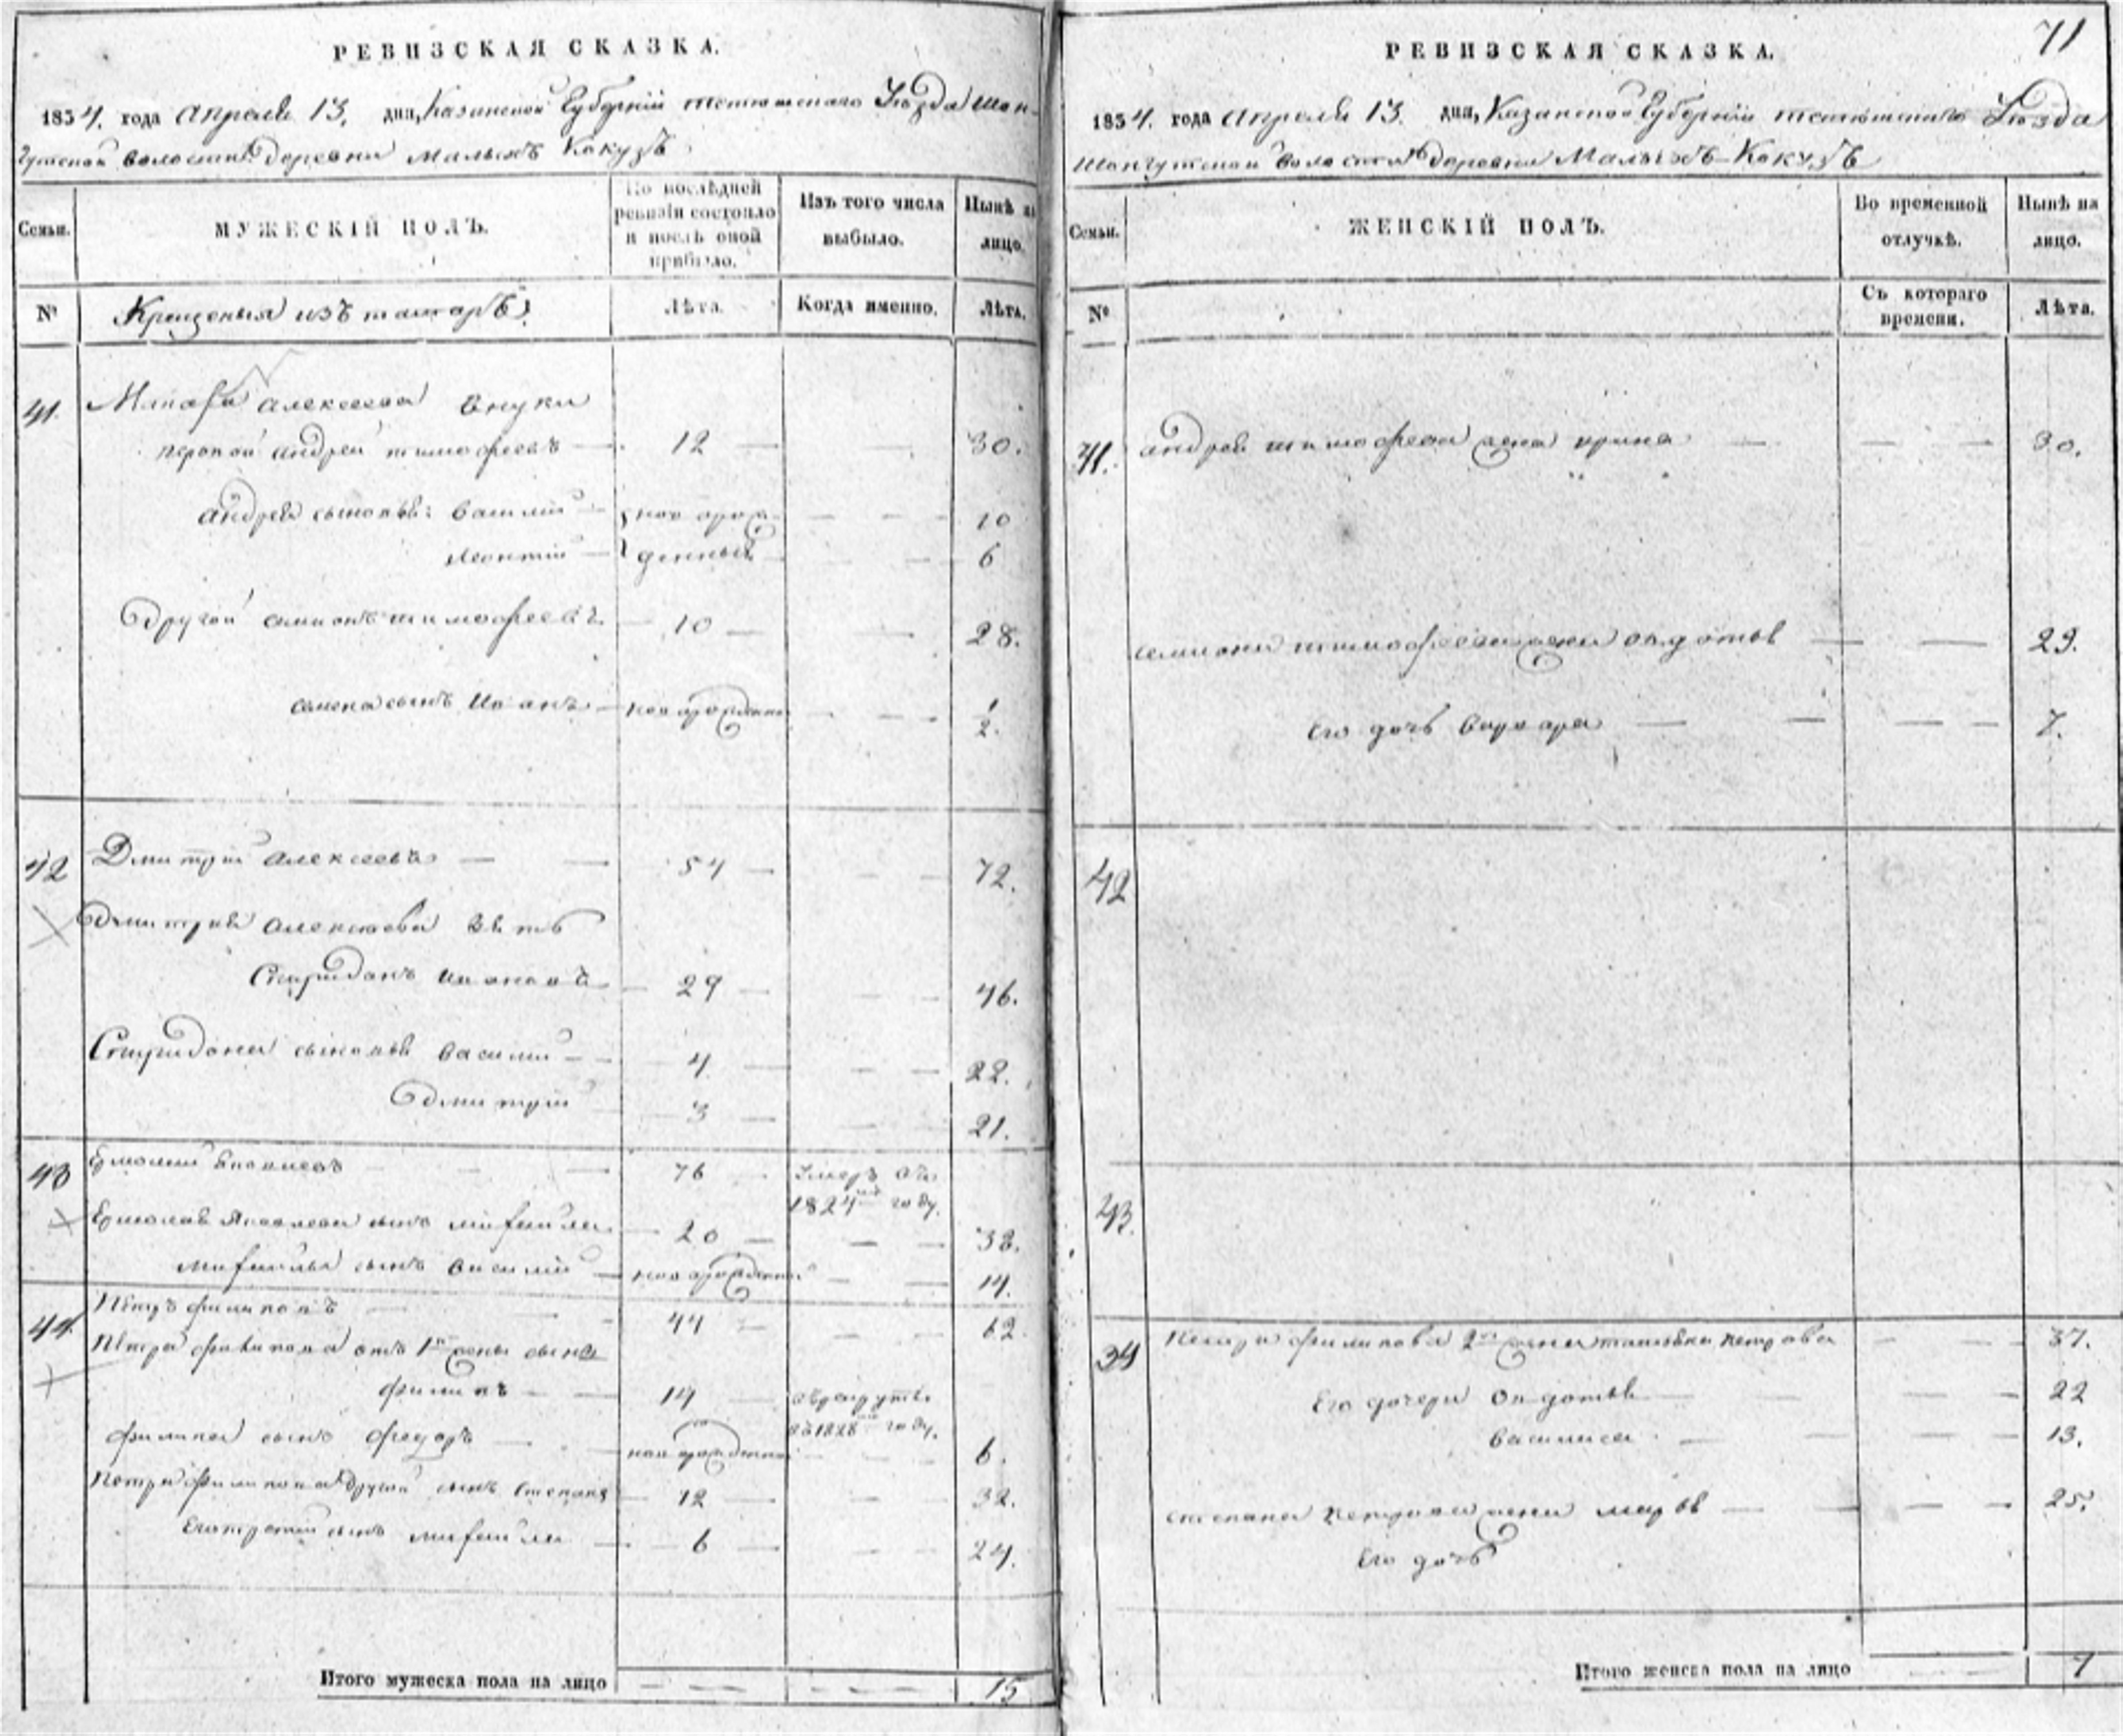 РЕВИЗСКАЯ СКАЗКА.
1834. года Апреля 13. дня, Казанской Губернии тетюшского Уезда Шон-
гутской волости Деревни Малыхъ Кокузъ
Семьи.
МУЖЕСКІЙ ПОЛЪ.
По послѣдней ревизіи состояло и послѣ оной прибыло.
Изъ того числа выбыло.
Нынѣ на лицо.
№
Крещеныя изъ татаръ
Лѣта.
Когда именно.
Лѣта.
41. алексеева внуки
первой андрей тимофеевъ — 12 — — 30.
андрея сыновья: василий — новорож- — — 10
леонтий — денныя — — 6
Другой симионъ тимофеевъ — 10 — — 28.
симена сынъ Иванъ — новорожденный — — 1/2.
42 Дмитрий алексеевъ — — 54 — — — 72.
Дмитрия алексеева зять
Спиридонъ ивановъ — 29 — — — 46.
Спиридона сыновья василий — — 4. — — — 22.
Дмитрий — 3 — — — 21.
43 Ермолай яковлевъ — — — 76 — умеръ въ
1824мъ году.
Ермолая Яковлева сынъ михайла — 20 — — — 38.
михайлы сынъ василий — новорожденный — — 14.
44. Петръ филиповъ — — — 44 — — — 62.
Петра филипова отъ 1й жены сынъ
филипъ — — 14 — въ рекруты
въ 1828мъ году.
филипа сынъ федоръ — — новорожденный — — 6.
Петра филипова другой сынъ степанъ — 12 — — — 32.
сынъ михайла — — 6 — — — 24.
Итого мужеска пола на лицо — — — — — — 15
71
РЕВИЗСКАЯ СКАЗКА.
1834. года Апреля 13. дня, Казанской Губернии тетюшского Уезда
Шонгутской волости Деревни Малыхъ Кокузъ
Семьи.
ЖЕНСКІЙ ПОЛЪ.
Во временной отлучкѣ.
Нынѣ на лицо.
№
Съ котораго времени.
Лѣта.
41. андрея тимофеева жена ирина — — — 30.
симиона тимофеева жена овдотья — — 29.
Его дочь варвара — — — — 7.
42
43.
34 Петра филипова 2я жена татьяна петрова — — 37.
Его дочери овдотья — — — 22
василиса — — — — 13.
степана петрова жена марья — — — — 25.
Его дочь
Итого женска пола на лицо — — 7